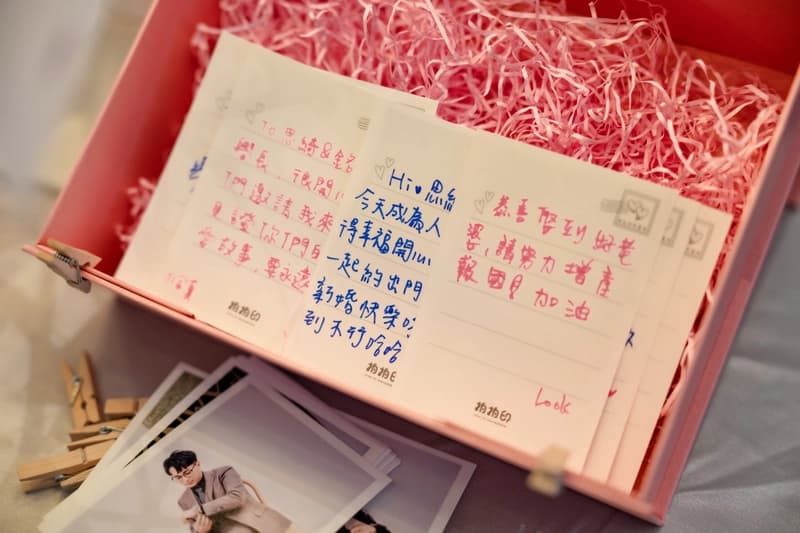 To 思綺&銘
學長,很開心
們邀請我來
見證你們
愛故事,要永遠
拍拍印
Hi 思綺
今天成為人
得幸福開心
一起約出門
新婚快樂
到不行哈哈
拍拍
恭喜娶到好老
婆,請努力增產
報國 加油
Look
拍拍印